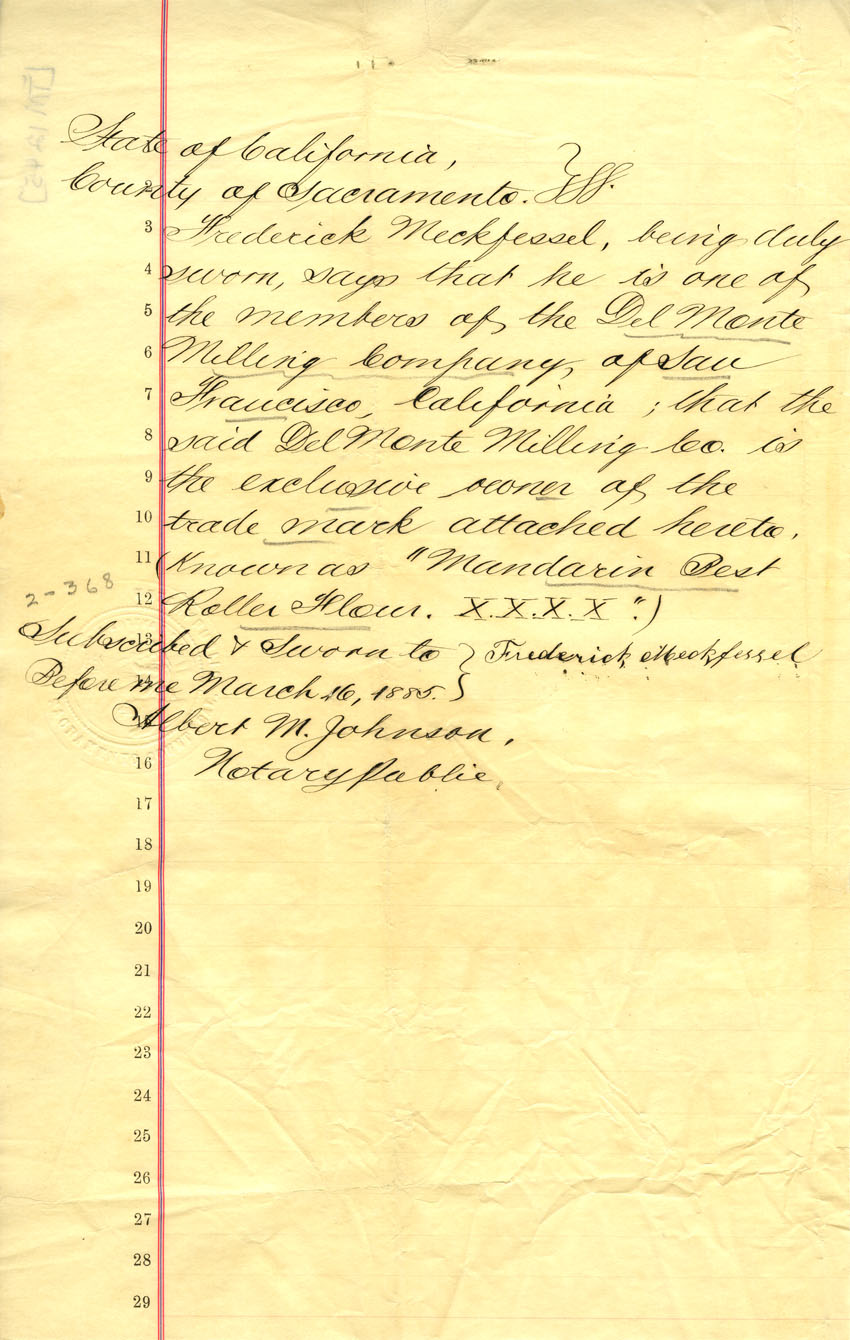 [TM 1245]
State of California,
County of Sacramento. } SS.
3 Frederick Meckfessel, being duly
4 sworn, says that he is one of
5 the members of the Del Monte
6 Milling Company, of San
7 Francisco, California; that the
8 said Del Monte Milling Co. is
9 the exclusive owner of the
10 trade mark attached hereto.
11 (Known as "Mandarin Best
2-368
12 Roller Flour. X.X.X.X".)
13 Subscribed & Sworn to } Frederick Meckfessel
Before me March 16, 1885. }
Albert M. Johnson,
16 Notary Public.
17
18
19
20
21
22
23
24
25
26
27
28
29